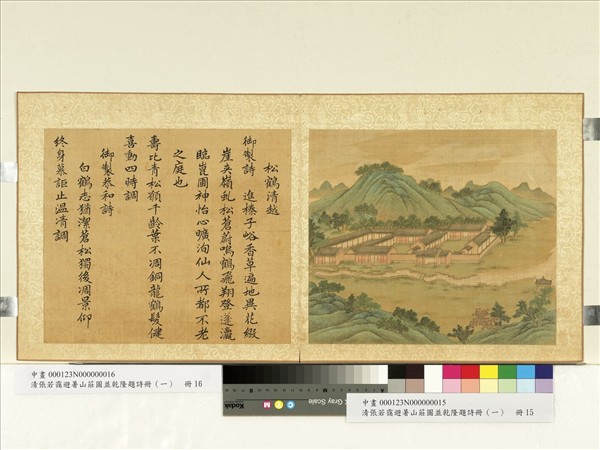 松鶴清越
御製詩 進榛子峪香草遍地異花綴
崖夾嶺虬松蒼蔚鳴鶴飛翔登蓬瀛
臨崑圃神怡心曠洵仙人所都不老
之庭也
壽比青松願千齡葉不凋銅龍鶴髮健
喜動四時調
御製恭和詩
白鶴志猶潔蒼松獨後凋景仰
終身慕詎止溫凊調
中畫 000123N000000016
清張若靄避暑山莊圖並乾隆題詩冊(一) 冊16
Kodak
Gray Scale
中畫 000123N000000015
清張若靄避暑山莊圖並乾隆題詩冊(一) 冊15